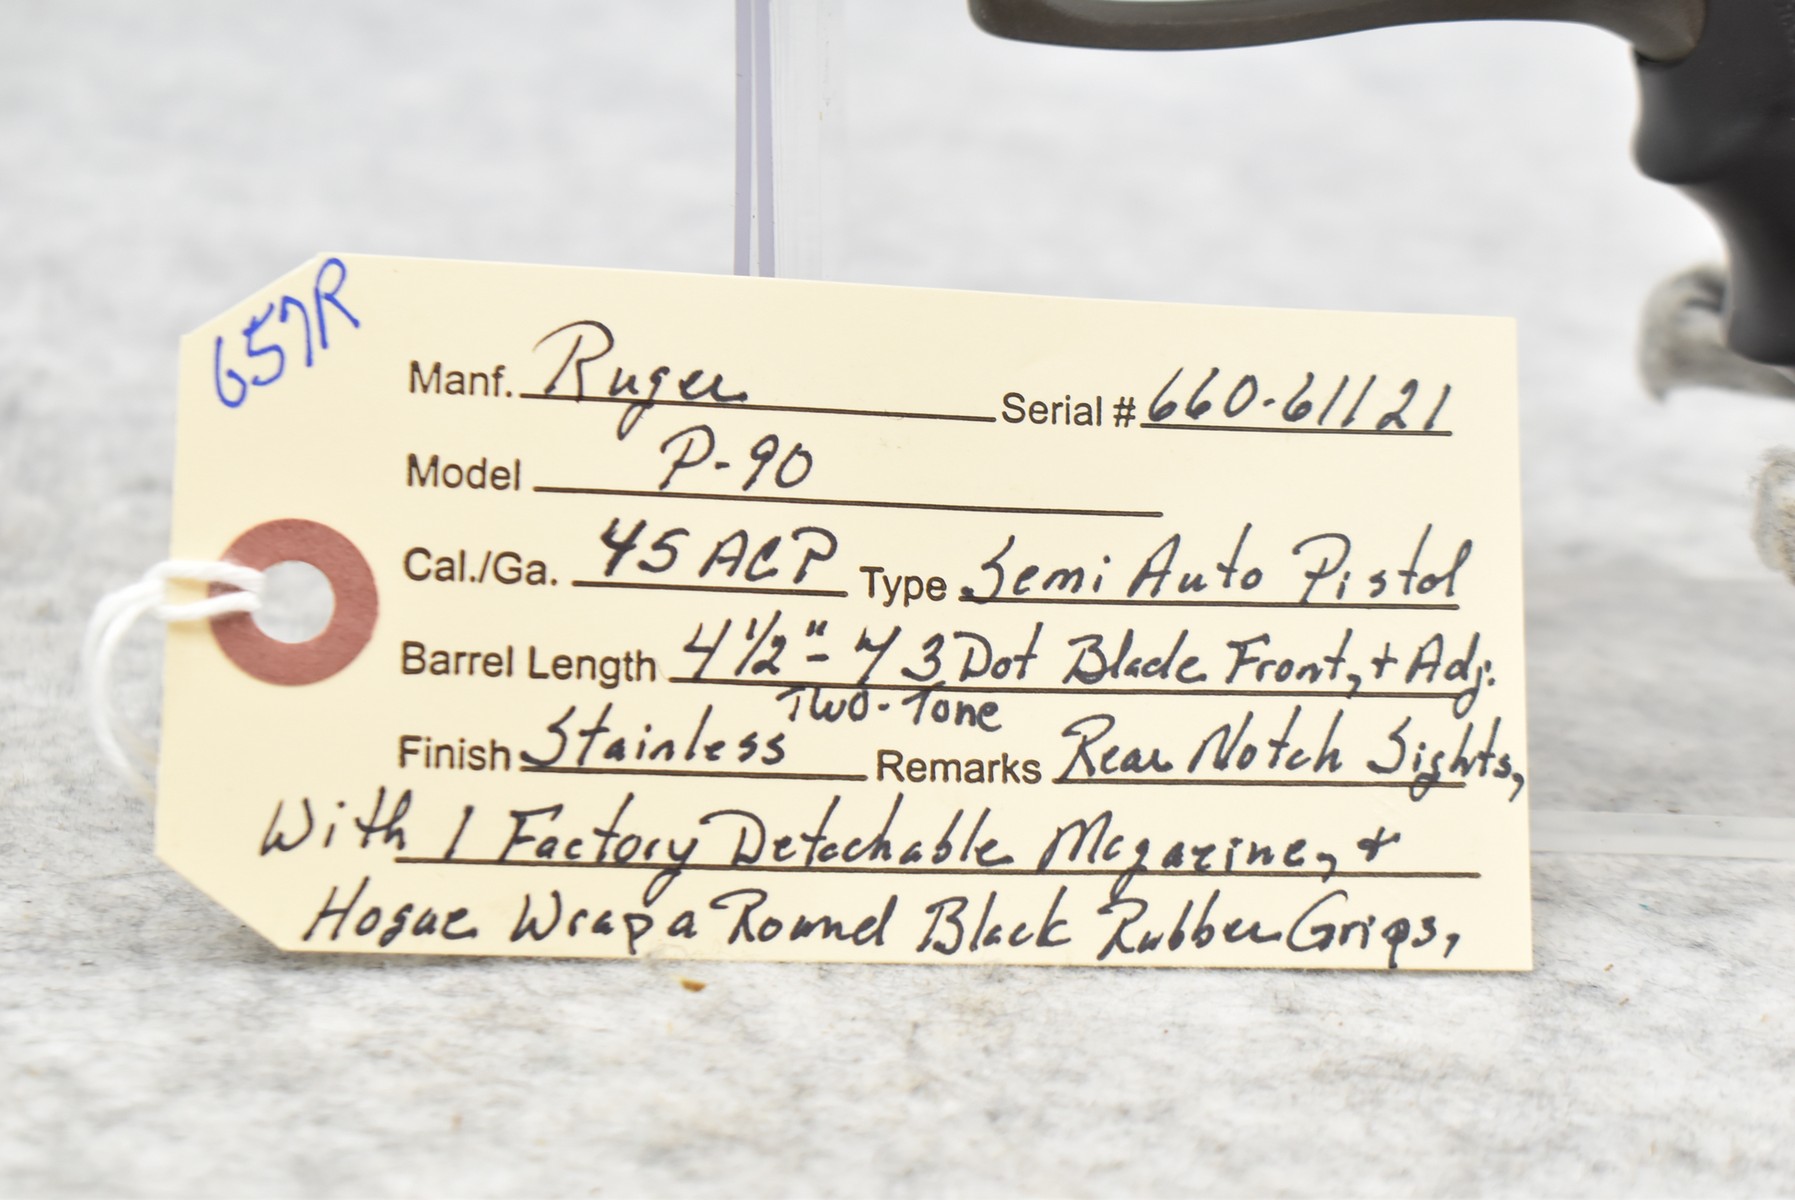 657R
Manf. Ruger Serial # 660-61121
Model P-90
Cal./Ga. 45 ACP Type Semi Auto Pistol
Barrel Length 4 1/2" - w/ 3 Dot Blade Front, + Adj.
Two-Tone
Finish Stainless Remarks Rear Notch Sights,
With 1 Factory Detachable Magazine, +
Hogue Wrap a Round Black Rubber Grips,